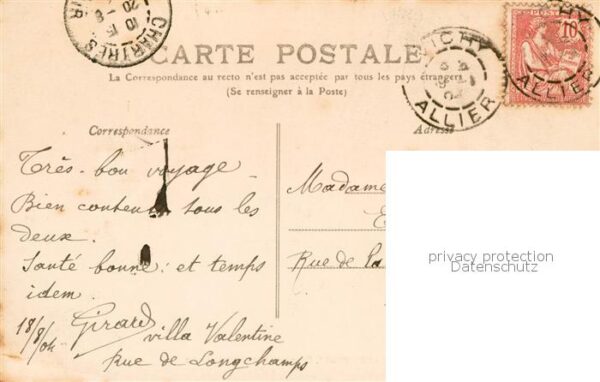 CARTE POSTALE
La Correspondance au recto n'est pas acceptée par tous les pays étrangers.
(Se renseigner à la Poste)
CHARTRES
VICHY
ALLIER
VICHY
ALLIER
10
POST
Correspondance
Adresse
Très-bon voyage
Bien contents tous les
deux.
Santé bonne: et temps
idem.
18/8/04
Girard
villa Valentine
Rue de Longchamps
Madame
Rue de la
privacy protection
Datenschutz